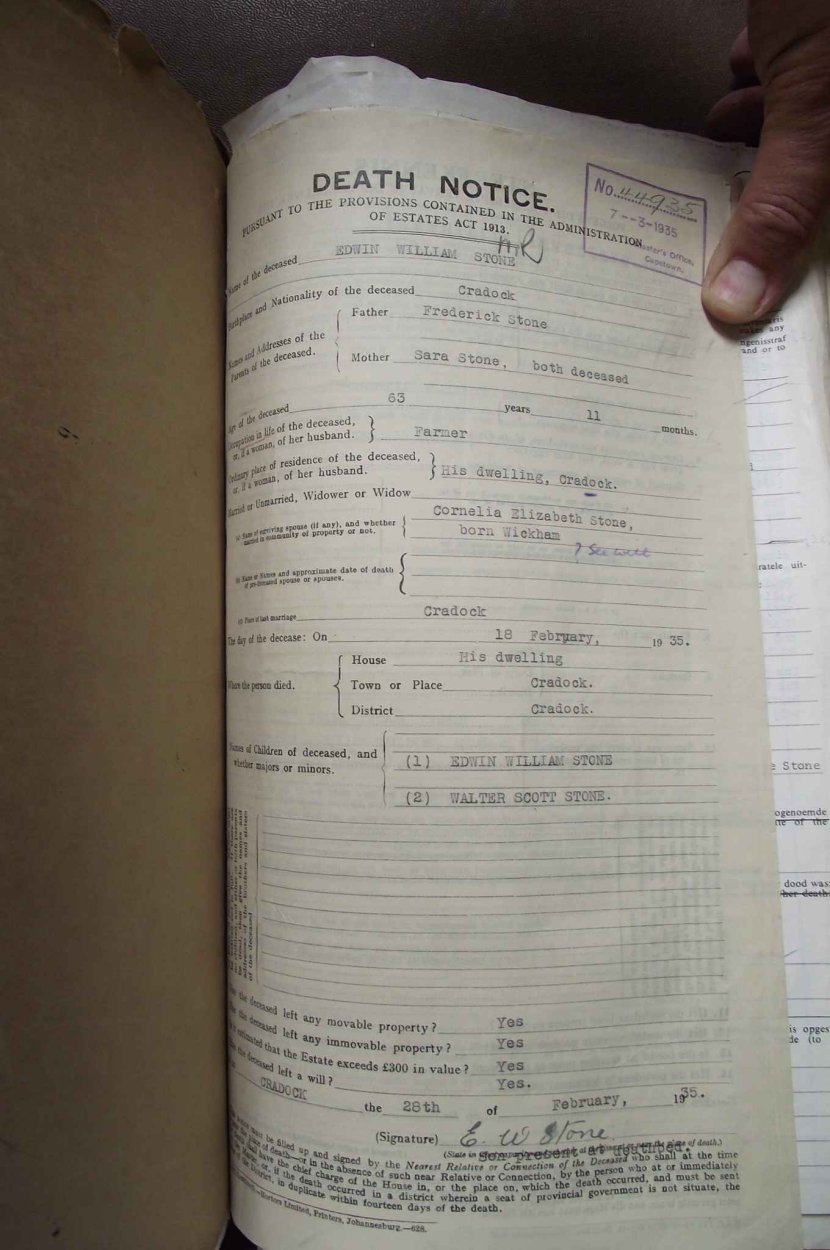 DEATH NOTICE.
PURSUANT TO THE PROVISIONS CONTAINED IN THE ADMINISTRATION
OF ESTATES ACT 1913.
No. 44935
7--3-1935
Master's Office,
Capetown.
Name of the deceased EDWIN WILLIAM STONE
Birthplace and Nationality of the deceased Cradock
Names and Addresses of the Parents of the deceased.
Father Frederick Stone
Mother Sara Stone, both deceased
Age of the deceased 63 years 11 months.
Occupation in life of the deceased,
or, if a woman, of her husband. Farmer
Ordinary place of residence of the deceased,
or, if a woman, of her husband. His dwelling, Cradock.
Married or Unmarried, Widower or Widow
(a) Name of surviving spouse (if any), and whether
married in community of property or not.
Cornelia Elizabeth Stone,
born Wickham
? See will
(b) Name or Names and approximate date of death
of pre-deceased spouse or spouses.
(c) Place of last marriage Cradock
The day of the decease: On 18 February, 1935.
Where the person died.
House His dwelling
Town or Place Cradock.
District Cradock.
Names of Children of deceased, and
whether majors or minors.
(1) EDWIN WILLIAM STONE
(2) WALTER SCOTT STONE.
the deceased left any movable property? Yes
the deceased left any immovable property? Yes
estimated that the Estate exceeds £300 in value? Yes
the deceased left a will? Yes.
CRADOCK the 28th of February, 1935.
(Signature) E. W Stone
Son present at deathbed.
must be filled up and signed by the Nearest Relative or Connection of the Deceased who shall at the time
of death—or in the absence of such near Relative or Connection, by the person who at or immediately
have the chief charge of the House in, or the place on, which the death occurred, and must be sent
or, if the death occurred in a district wherein a seat of provincial government is not situate, the
in duplicate within fourteen days of the death.
Hortors Limited, Printers, Johannesburg.—628.
any
and or to
Stone
ogenoemde
of the
dood was
her death
is opges
(to